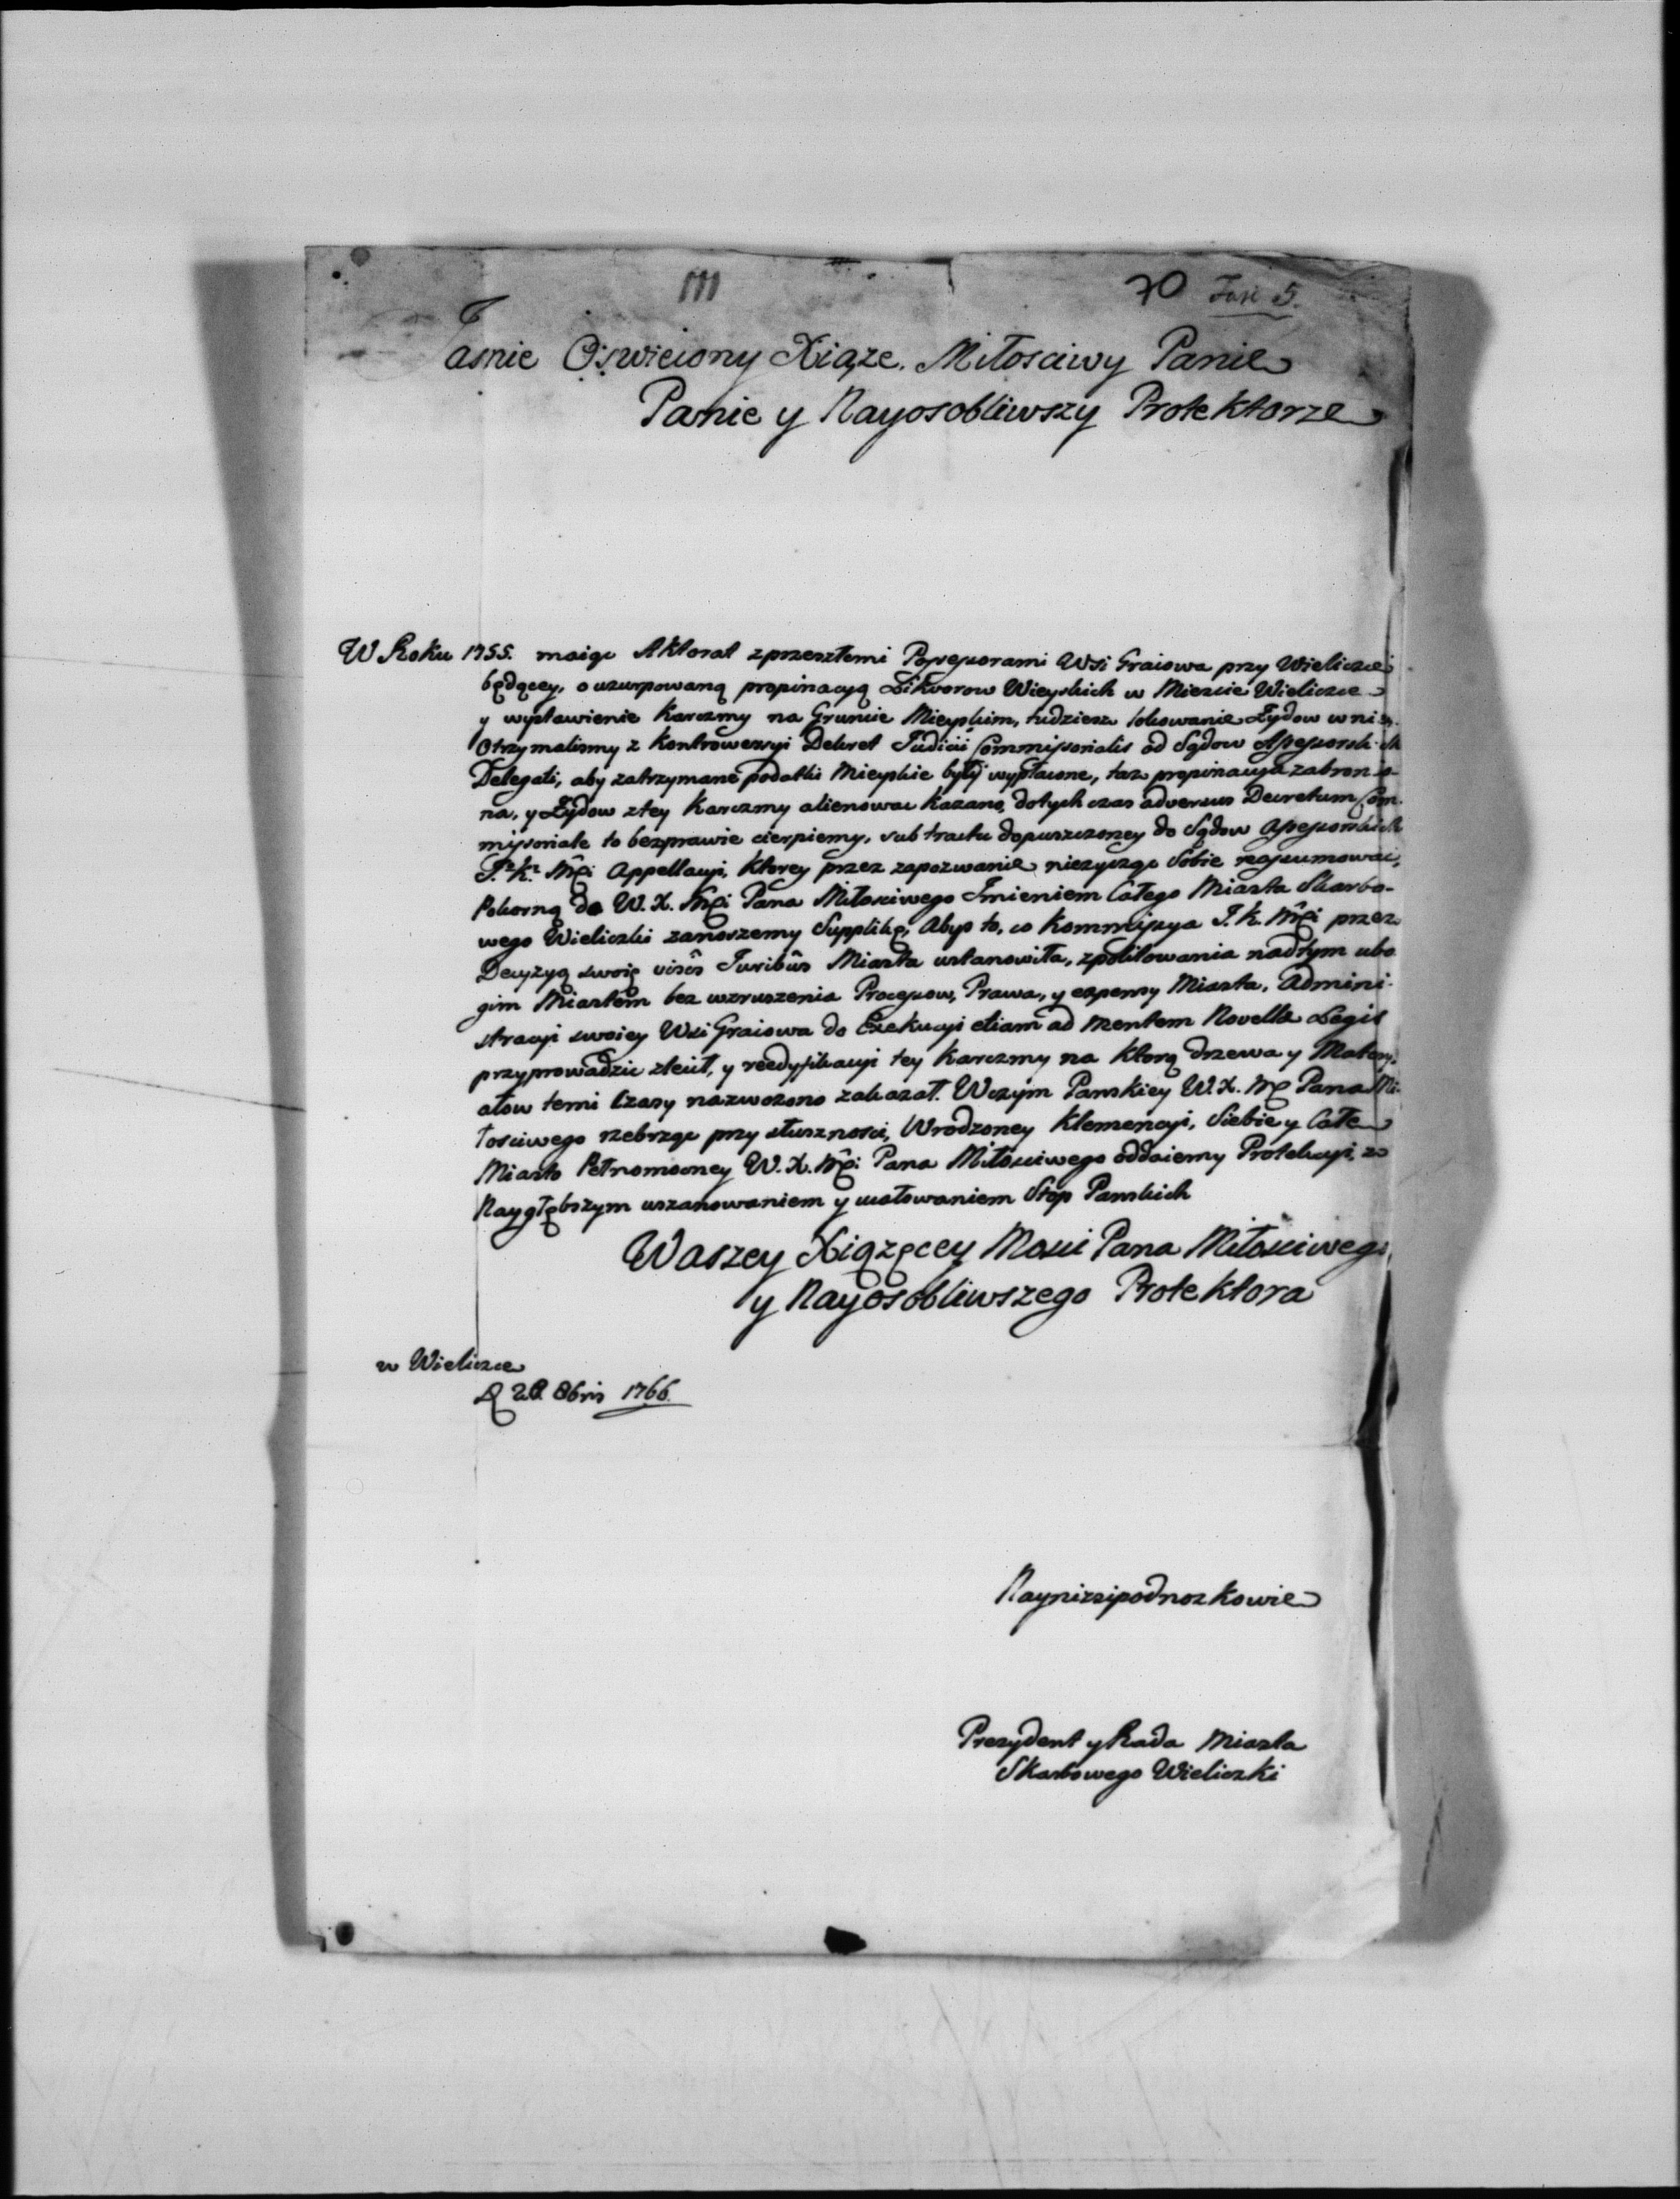 111
70 Fasc 5.
Jasnie Oswiecony Xiąże. Miłosciwy Panie
Panie y Nayosobliwszy Protektorze
W Roku 1755. maiąc Aktorat z przeszłemi Possessorami Wsi Graiowa przy Wieliczce
będącey, o uzurpowaną propinacyą Likworow Wieyskich w Miescie Wieliczce
y wystawienie Karczmy na Gruncie Mieyskim, tudziesz lokowanie Zydow w niey.
Otrzymalismy z Kontrowersyi Dekret Judicii Commissorialis od Sądow Assessorskich
Delegati, aby zatrzymane podatki Mieyskie były wypłacone, taz propinacya zabronio-
na, y Zydow z tey Karczmy alienowac kazano, dotychczas adversus Decretum Com-
missoriale to bezprawie cierpiemy, sub tractu dopuszczoney do Sądow Assessorskich
J. K. Mci Appellacyi, ktorey przez zapozwanie nieżycząc sobie reassumowac,
Pokorną do W. X. Mci Pana Miłosciwego Imieniem Całego Miasta Skarbo-
wego Wieliczki zanoszemy Supplikę, Abys to, co Kommissya J. K. Mci przez
Decyzyą swoię visis Juribus Miasta ustanowiła, z politowania nad tym ubo
gim Miastem bez wzruszenia Processow, Prawa, y expensy Miasta, Admini-
stracyi swoiey Wsi Graiowa do Exekucyi etiam ad mentem Novellæ Legis
przyprowadzic zlecił, y reedyfikacyi tey Karczmy na ktorą drzewa y Matery-
ałow temi czasy nazwozono zakazał. W czym Panskiey W. X. Mci Pana Mi-
łosciwego zebrząc przy słusznosci, Wrodzoney Klemencyi, Siebie y Całe
Miasto Pełnomocney W. X. Mci Pana Miłosciwego oddaiemy Protekcyi, z
Naygłębszym uszanowaniem y ucałowaniem Stop Panskich
Waszey Xiążęcey Mosci Pana Miłosciwego
y Nayosobliwszego Protektora
w Wieliczce
D 28 8bris 1766.
Nayniżsi podnozkowie
Prezydent y Rada Miasta
Skarbowego Wieliczki